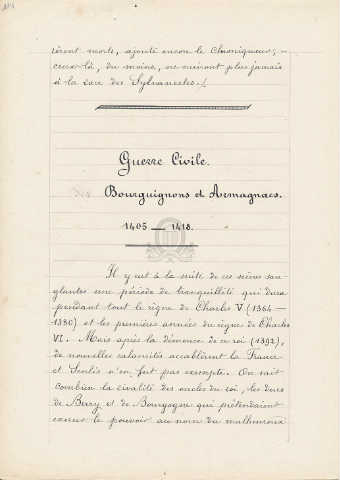 rèrent morts, ajoute encore le Chroniqueur; —
ceux-là, du moins, ne nuiront plus jamais
à la race des Sylvanectes./.
Guerre Civile.
des Bourguignons et Armagnacs.
1405 — 1418.
Il y eut à la suite de ces scènes san
glantes une période de tranquillité qui dura
pendant tout le règne de Charles V. (1364 —
1380) et les premières années du règne de Charles
VI. Mais après la démence de ce roi (1392),
de nouvelles calamités accablèrent la France
et Senlis n'en fut pas exempte. On sait
combien la rivalité des oncles du roi, les ducs
de Berry et de Bourgogne qui prétendaient
exercer le pouvoir au nom du malheureux